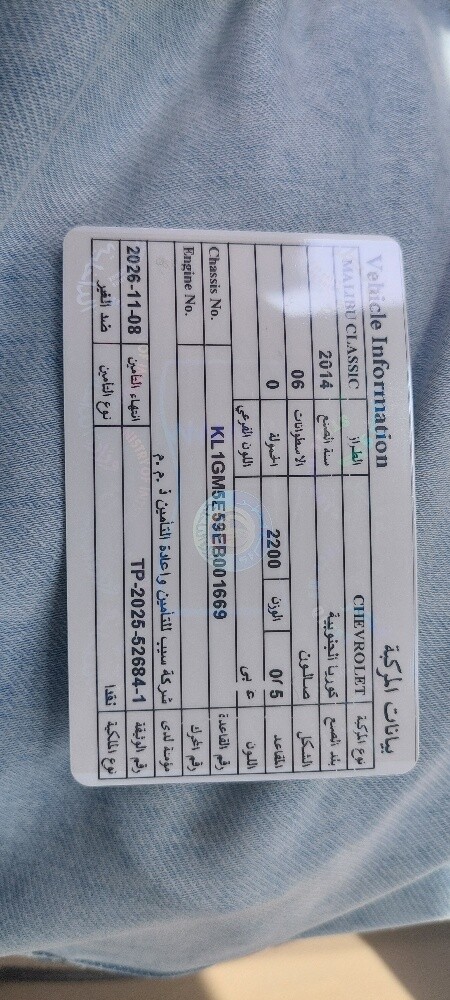 بيانات المركبة Vehicle Information
نوع المركبة CHEVROLET الطراز MALIBU CLASSIC
بلد الصنع كوريا الجنوبية سنة الصنع 2014
الشكل صالون الاسطوانات 06
المقاعد 0/5 الوزن 2200 الحمولة 0
اللون اللون الفرعي
رقم القاعدة KL1GM5E59EB001669 Chassis No.
رقم المحرك Engine No.
مؤمنة لدى شركة سيب للتأمين واعادة التأمين ذ.م.م
رقم الوثيقة TP-2025-52684-1 انتهاء التامين 2026-11-08
نوع الملكية نقدا نوع التامين ضد الغير